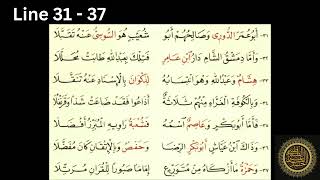 Line 31 - 37
٣١- أَبُو عُمَرَ الدُّورِي وَصَالِحُهُمْ أَبُو شُعَيْبٍ هُوَ السُّوسِيُّ عَنْهُ تَقَبَّلَا
٣٢- وَأَمَّا دِمَشْقُ الشَّامِ دَارُ ابْنِ عَامِرٍ فَتِلْكَ بِعَبْدِ اللهِ طَابَتْ مُحَلَّلَا
٣٣- هِشَامٌ وَعَبْدُ اللهِ وَهْوَ انْتِسَابُهُ لِذَكْوَانَ بِالْإِسْنَادِ عَنْهُ تَنَقَّلَا
٣٤- وَبِالْكُوفَةِ الْغَرَّاءِ مِنْهُمْ ثَلَاثَةٌ أَذَاعُوا فَقَدْ ضَاعَتْ شَذًا وَقَرَنْفُلَا
٣٥- فَأَمَّا أَبُو بَكْرٍ وَعَاصِمٌ اسْمُهُ فَشُعْبَةُ رَاوِيهِ الْمُبَرِّزُ أَفْضَلَا
٣٦- وَذَاكَ ابْنُ عَيَّاشٍ أَبُو بَكْرٍ الرِّضَا وَحَفْصٌ وَبِالْإِتْقَانِ كَانَ مُفَضَّلَا
٣٧- وَحَمْزَةُ مَا أَزْكَاهُ مِنْ مُتَوَرِّعٍ إِمَامًا صَبُورًا لِلْقُرَانِ مُرَتِّلَا